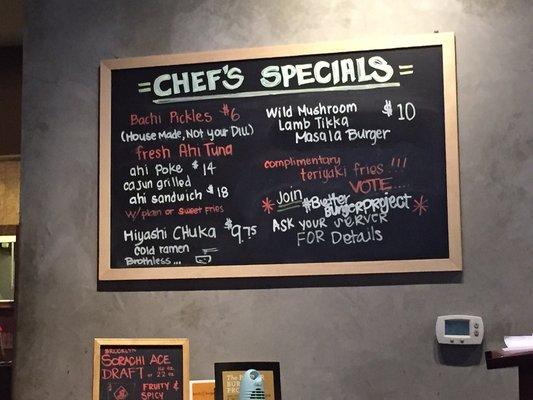 CHEF'S SPECIALS
Bachi Pickles $6
(House Made, Not your Dill)
fresh Ahi Tuna
ahi poke $14
cajun grilled
ahi sandwich $18
w/ plain or sweet fries
Hiyashi CHUKA $9.75
cold ramen
Brothless...
Wild Mushroom $10
Lamb Tikka
Masala Burger
complimentary
teriyaki fries!!!
VOTE...
Join #Better
BURGERPROJECT
ASK YOUR SERVER
FOR Details
BROOKLYN
SORACHI ACE
DRAFT
22 oz
FRUITY &
SPICY